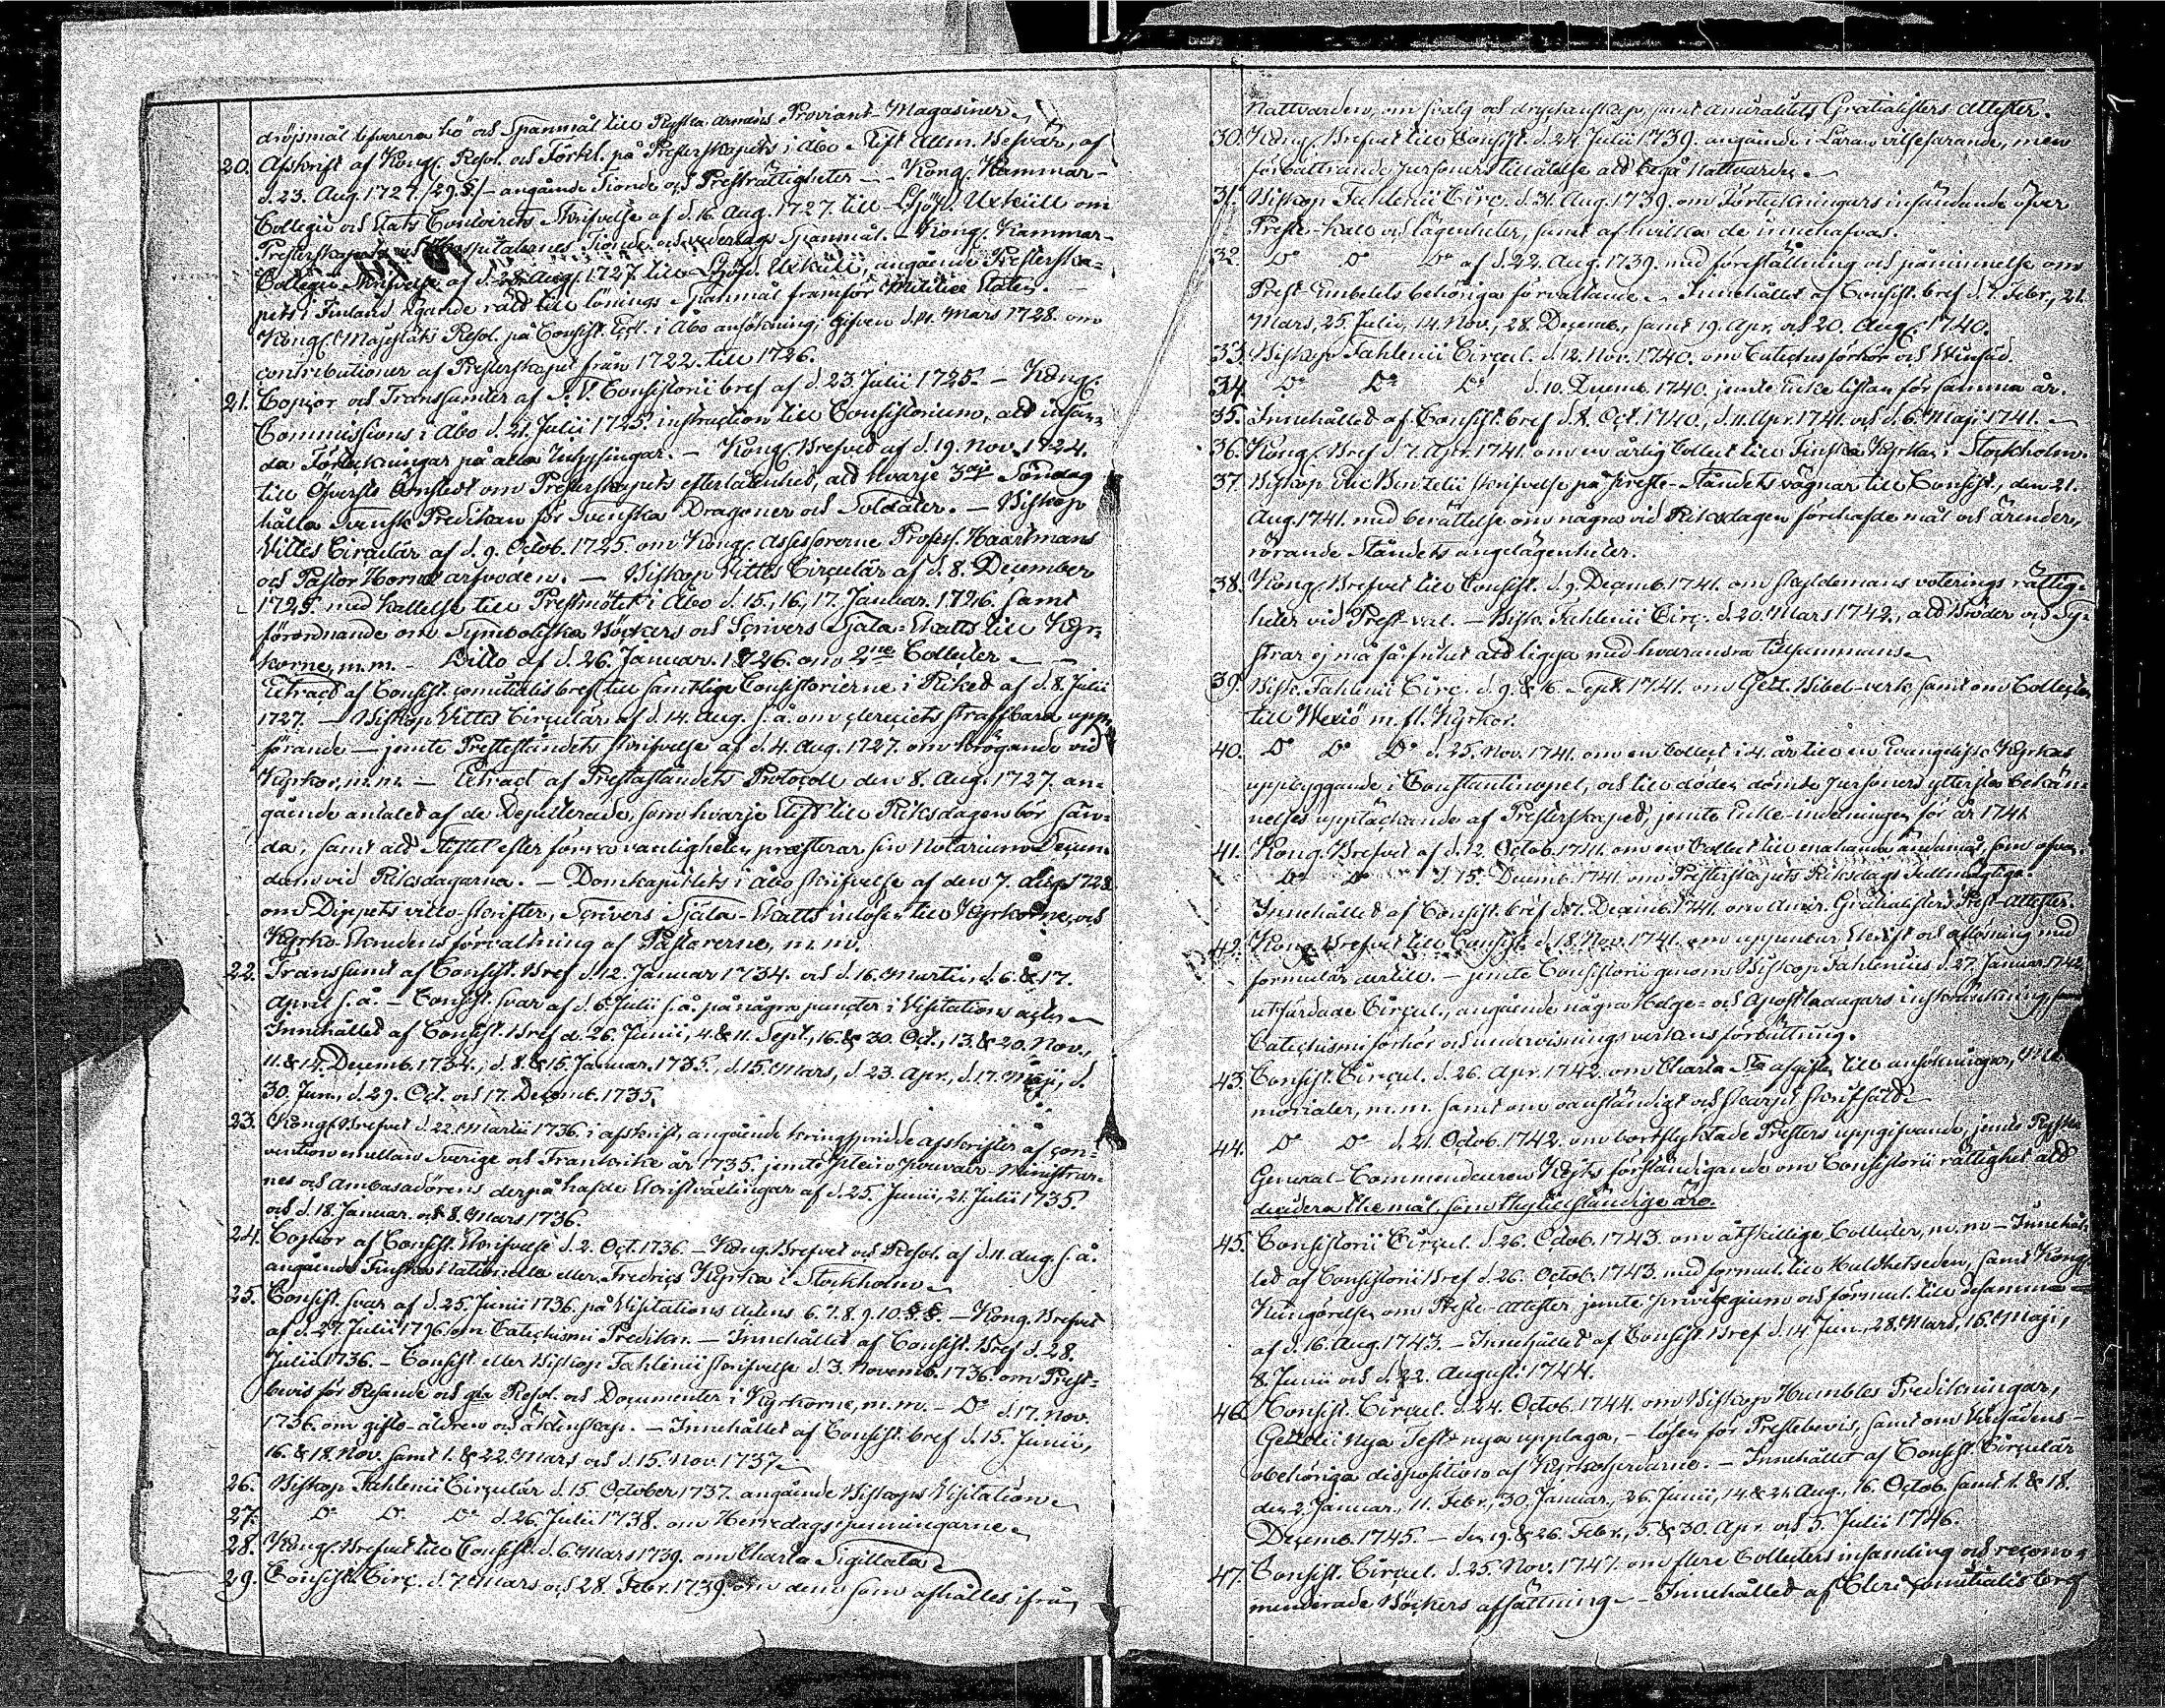 dröjsmål leverera hö och Spanmål till Ryska armens Proviant-Magasiner.
20. Afskrift af Kongl. Resol. och Förkl. på Presterskapets i Åbo Stift Allm. Besvär, af
d. 23. Aug. 1727. /29.§/ – angående Tionde och Presträttigheter – Kong. Kammar-
Collegii och Stats Contoirets Skrifvelse af d. 16. Aug. 1727. till Üxküll om
Presterskapets och Hospitalernes Tionde och vederlags Spanmål. – Kong. Kammar-
Collegii Skrifvelse af d. 28 Aug. 1727. till Üxküll, angående Presterska-
pets i Finland ägande rätt till lönings Spanmål framför Militiæ Staten. –
Kongl. Majestäts Resol. på Consist. Eccl. i Åbo ansökning, gifven d. 11. Mars 1728. om
contributioner af Presterskapet från 1722. till 1726.
21. Copior och Transsumter af S. V. Consistorii bref af d. 23. Julii 1725. – Kongl.
Commissions i Åbo d. 21. Julii 1725. instruction till Consistorium, att insän-
da Förteckningar på alla Inhysingar. – Kongl. Brefvet af d. 19. Nov. 1724.
till Öfverste Armfelt om Presterskapets efterlåtenhet, att hvarje 3dje Söndag
hålla Svensk Predikan för Svenska Dragoner och Soldater. – Biskop
Wittes Circulär af d. 9. Octob. 1725. om Kongl. Assessorerne Profess. Haartmans
och Pastor Horns arfvoden. – Biskop Wittes Circulär af d. 8. December
1725. med kallelse till Prestmötet i Åbo d. 15, 16, 17. Januar. 1726. samt
förordnande om Symboliska Böckers och Scrivers Själa-Skatts till Kyr-
korne, m.m. – Ditto af d. 26. Januar. 1726. om 2ne Collecter –
Extract af Consist. comitialis bref till samtlige Consistorierne i Riket af d. 8. Julii
1727. – Biskop Wittes Circulär af d. 14. Aug. s. å. om cleresiets straffbara upp-
förande – jemte Presteståndets skrifvelse af d. 4. Aug. 1727. om krögande vid
Kyrkor, m.m. – Extract af Prestaståndets Protocoll den 8. Aug. 1727. an-
gående antalet af de Deputerade, som hvarje Stift till Riksdagen bör sän-
da, samt att Stiftet efter förra vanligheten præsterar sin Notarium Dicen-
dum vid Riksdagarna. – Domkapitlets i Åbo skrifvelse af den 7. Aug. 1728
om Dippels villo-skrifter, Scrivers Själa-Skatts inlösen till Kyrkorne, och
Kyrko Skrudens förvaltning af Pastorerne, m.m.
22. Transsumt af Consist. Bref d. 12. Januar 1734. och d. 16. Martii, d. 6. & 17.
April s. å. – Consist. svar af d. 6. Julii s. å. på några puncter i Visitations acten
Innehållet af Consist. Bref d. 26. Junii, 4. & 11. Sept., 16. & 30. Oct., 13. & 20. Nov.,
11. & 14. Decemb. 1734., d. 8. & 15. Januar. 1735., d. 15. Mars, d. 23. Apr., d. 17. Maji, d.
30. Jun., d. 29. Oct. och 17. Decemb. 1735.
23. Kongl. Brefvet d. 22. Martii 1736. i afskrift, angående kringspridde afskrifter af con-
vention emellan Sverige och Frankrike år 1735. jemte Plein pouvoir-Ministrar-
nes och Ambasadörens derpå hafde Skriftväxlingar af d. 25. Junii, 21. Julii 1735.
och d. 18. Januar. och 8. Mars 1736.
24. Copior af Consist. Skrifvelse d. 2. Oct. 1736. – Kong. Brefvet och Resol. af d. 11. Aug. s. å.
angående Finska Nationella eller Fredrics Kyrka i Stockholm.
25. Consist. svar af d. 25. Junii 1736. på Visitations Actens 6. 7. 8. 9. 10. §.§. – Kong. Brefvet
af d. 27. Julii 1796 om Catechismi Predikn. – Innehållet af Consist. Bref d. 28.
Julii 1736. – Consist. eller Biskop Fahlenii skrifvelse d. 3. Novemb. 1736. om Prest-
bevis för Resande och Resol. och Documenter i Kyrkorne, m.m. – Do d. 17. Nov.
1736. om gifto-åldren och äktenskap. – Innehållet af Consist. bref d. 15. Junii,
16. & 18. Nov. samt 1. & 22. Mars och d. 15. Nov. 1737.
26. Biskop Fahlenii Circulär d. 15. October 1737. angående Biskops Visitation
27. Do Do Do d. 26. Julii 1738. om Herredagspenningarne
28. Kongl. Brefvet till Consist. d. 6. Mars 1739. om Charta Sigillata
29. Consist. Circ. d. 7. Mars och 28. Febr. 1739. om dem som afhålles ifrån
Nattvarden, om svalg och dryckenskap, samt Amiralitets Gratialisters Attester.
30. Kongl. Brefvet till Consist. d. 24. Julii 1739. angående i Läran vilsefarande, men
förbättrande personers tillåtelse att begå Nattvarden.
31. Biskop Fahlenii Circ. d. 31. Aug. 1739. om Förteckningars insändande öfver
Preste-kall och lägenheter, samt af hvilka de innehafvas.
32. Do Do Do af d. 22. Aug. 1739. med föreställning och påminnelse om
Prest-Embetets behöriga förvaltande. – Innehållet af Consist. bref d. 7. Febr., 21.
Mars, 25. Julii, 14. Nov., 28. Decemb., samt 19. Apr. och 20. Aug. 1740.
33. Biskop Fahlenii Circul. d. 12. Nov. 1740. om Catechesförhör och Winsäd.
34. Do Do Do d. 10. Decemb. 1740. jemte Encke listan för samma år.
35. Innehållet af Consist. bref d. 8. Oct. 1740, d. 11. Apr. 1741. och d. 6. Maji 1741.
36. Kongl. Bref d. 7. Apr. 1741. om en årlig Collect till Finska Kyrkan i Stockholm.
37. Biskop Eric Benzelii skrifvelse på Preste-Ståndets vägnar till Consist., den 21.
Aug. 1741. med berättelse om några vid Riksdagen förehafde mål och ärender,
rörande Ståndets angelägenheter.
38. Kongl. Brefvet till Consist. d. 9. Decemb. 1741. om voterings rättig-
heter vid Prest-val. – Bisk. Fahlenii Circ. d. 20. Mars 1742., att Bröder och Sy-
strar ej må få frihet att ligga med hvarandra tillsammans
39. Bisk. Fahlenii Circ. d. 9. & 16. Sept. 1741. om Gezel. Bibel-verk, samt om Collecten
till Wexiö m. fl. Kyrkor.
40. Do Do Do d. 25. Nov. 1741. om en Collect i 4. år till en Evangelisk Kyrkas
uppbyggande i Constantinopel, och till döden dömde personers yttersta bekän-
nelses upptäckande af Presterskapet, jemte Encke-indelningen för år 1741
41. Kong. Brefvet af d. 12. Octob. 1741. om en Collect till enahanda ändamål, som ofvan.
Do Do d. 15. Decemb. 1741. om Presterskapets Riksdags Fullmägtige.
Innehållet af Consist. bref d. 7. Decemb. 1741. om Amir. Gratialisters Prest-Attester.
42. Kong. Brefvet till Consist. d. 18. Nov. 1741. om uppenbar Skrift och aflösning med
formulär dertill. – jemte Consistorii genom Biskop Fahlenius d. 27. Januar 1742
utfärdade Circul., angående några Helge- och Apostladagars inskränkning, samt
Catechismi förhör och undervisnings verkens förbättring.
43. Consist. Circul. d. 26. Apr. 1742. om Charta Sta afgiften till ansökningar,
morialer, m.m. samt om oanständigt och skarpt skrifsätt
44. Do Do d. 21. Octob. 1742. om bortflyktade Presters uppgifvande, jemte Ryska
General-Commendeuren Kejts förständigande om Consistorii rättighet att
decidera the mål, som thy tillständige äro.
45. Consistorii Circul. d. 26. Octob. 1743. om åtskillige Collecter, m.m. – Innehål-
let af Consistorii Bref d. 26. Octob. 1743. med formul. till Huldhetseden, samt Kongl.
Kungörelse, om Preste-Attester jemte privilegium och formul. till desamma –
af d. 16. Aug. 1743. – Innehållet af Consist. Bref d. 14. Jun., 28. Mars, 16. Maji,
8. Junii och d. 22. Augusti 1744.
46. Consist. Circul. d. 24. Octob. 1744. om Biskop Humbles Predikningar,
Gezelii Nya Test. nya upplaga, – lösen för Prestebevis, samt om
obehöriga disposition af Kyrkoherdarne. – Innehållet af Consist. Circulär
den 2. Januar., 11. Febr., 30. Januar., 26. Junii, 14. & 21. Aug., 16. Octob. samt 1. & 18.
Decemb. 1745. – den 19. & 26. Febr., 5. & 30. Apr. och 5. Julii 1746.
47. Consist. Circul. d. 25. Nov. 1747. om flere Collecters insamling och recom-
menderade Böckers afsättning – Innehållet af Cleri comitialis bref